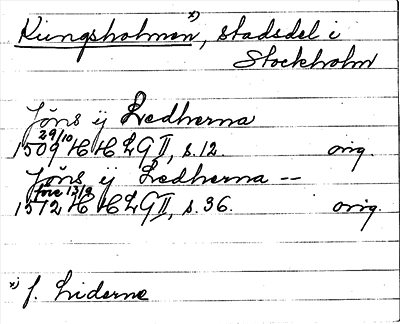 Kungsholmen x), stadsdel i
Stockholm
Jöns ij Ledherna
29/10
1509 H H LG II, s. 12. orig.
Jöns ij Ledherna --
före 13/2
1512 H H LG II, s. 36. orig.
x) f. Liderne